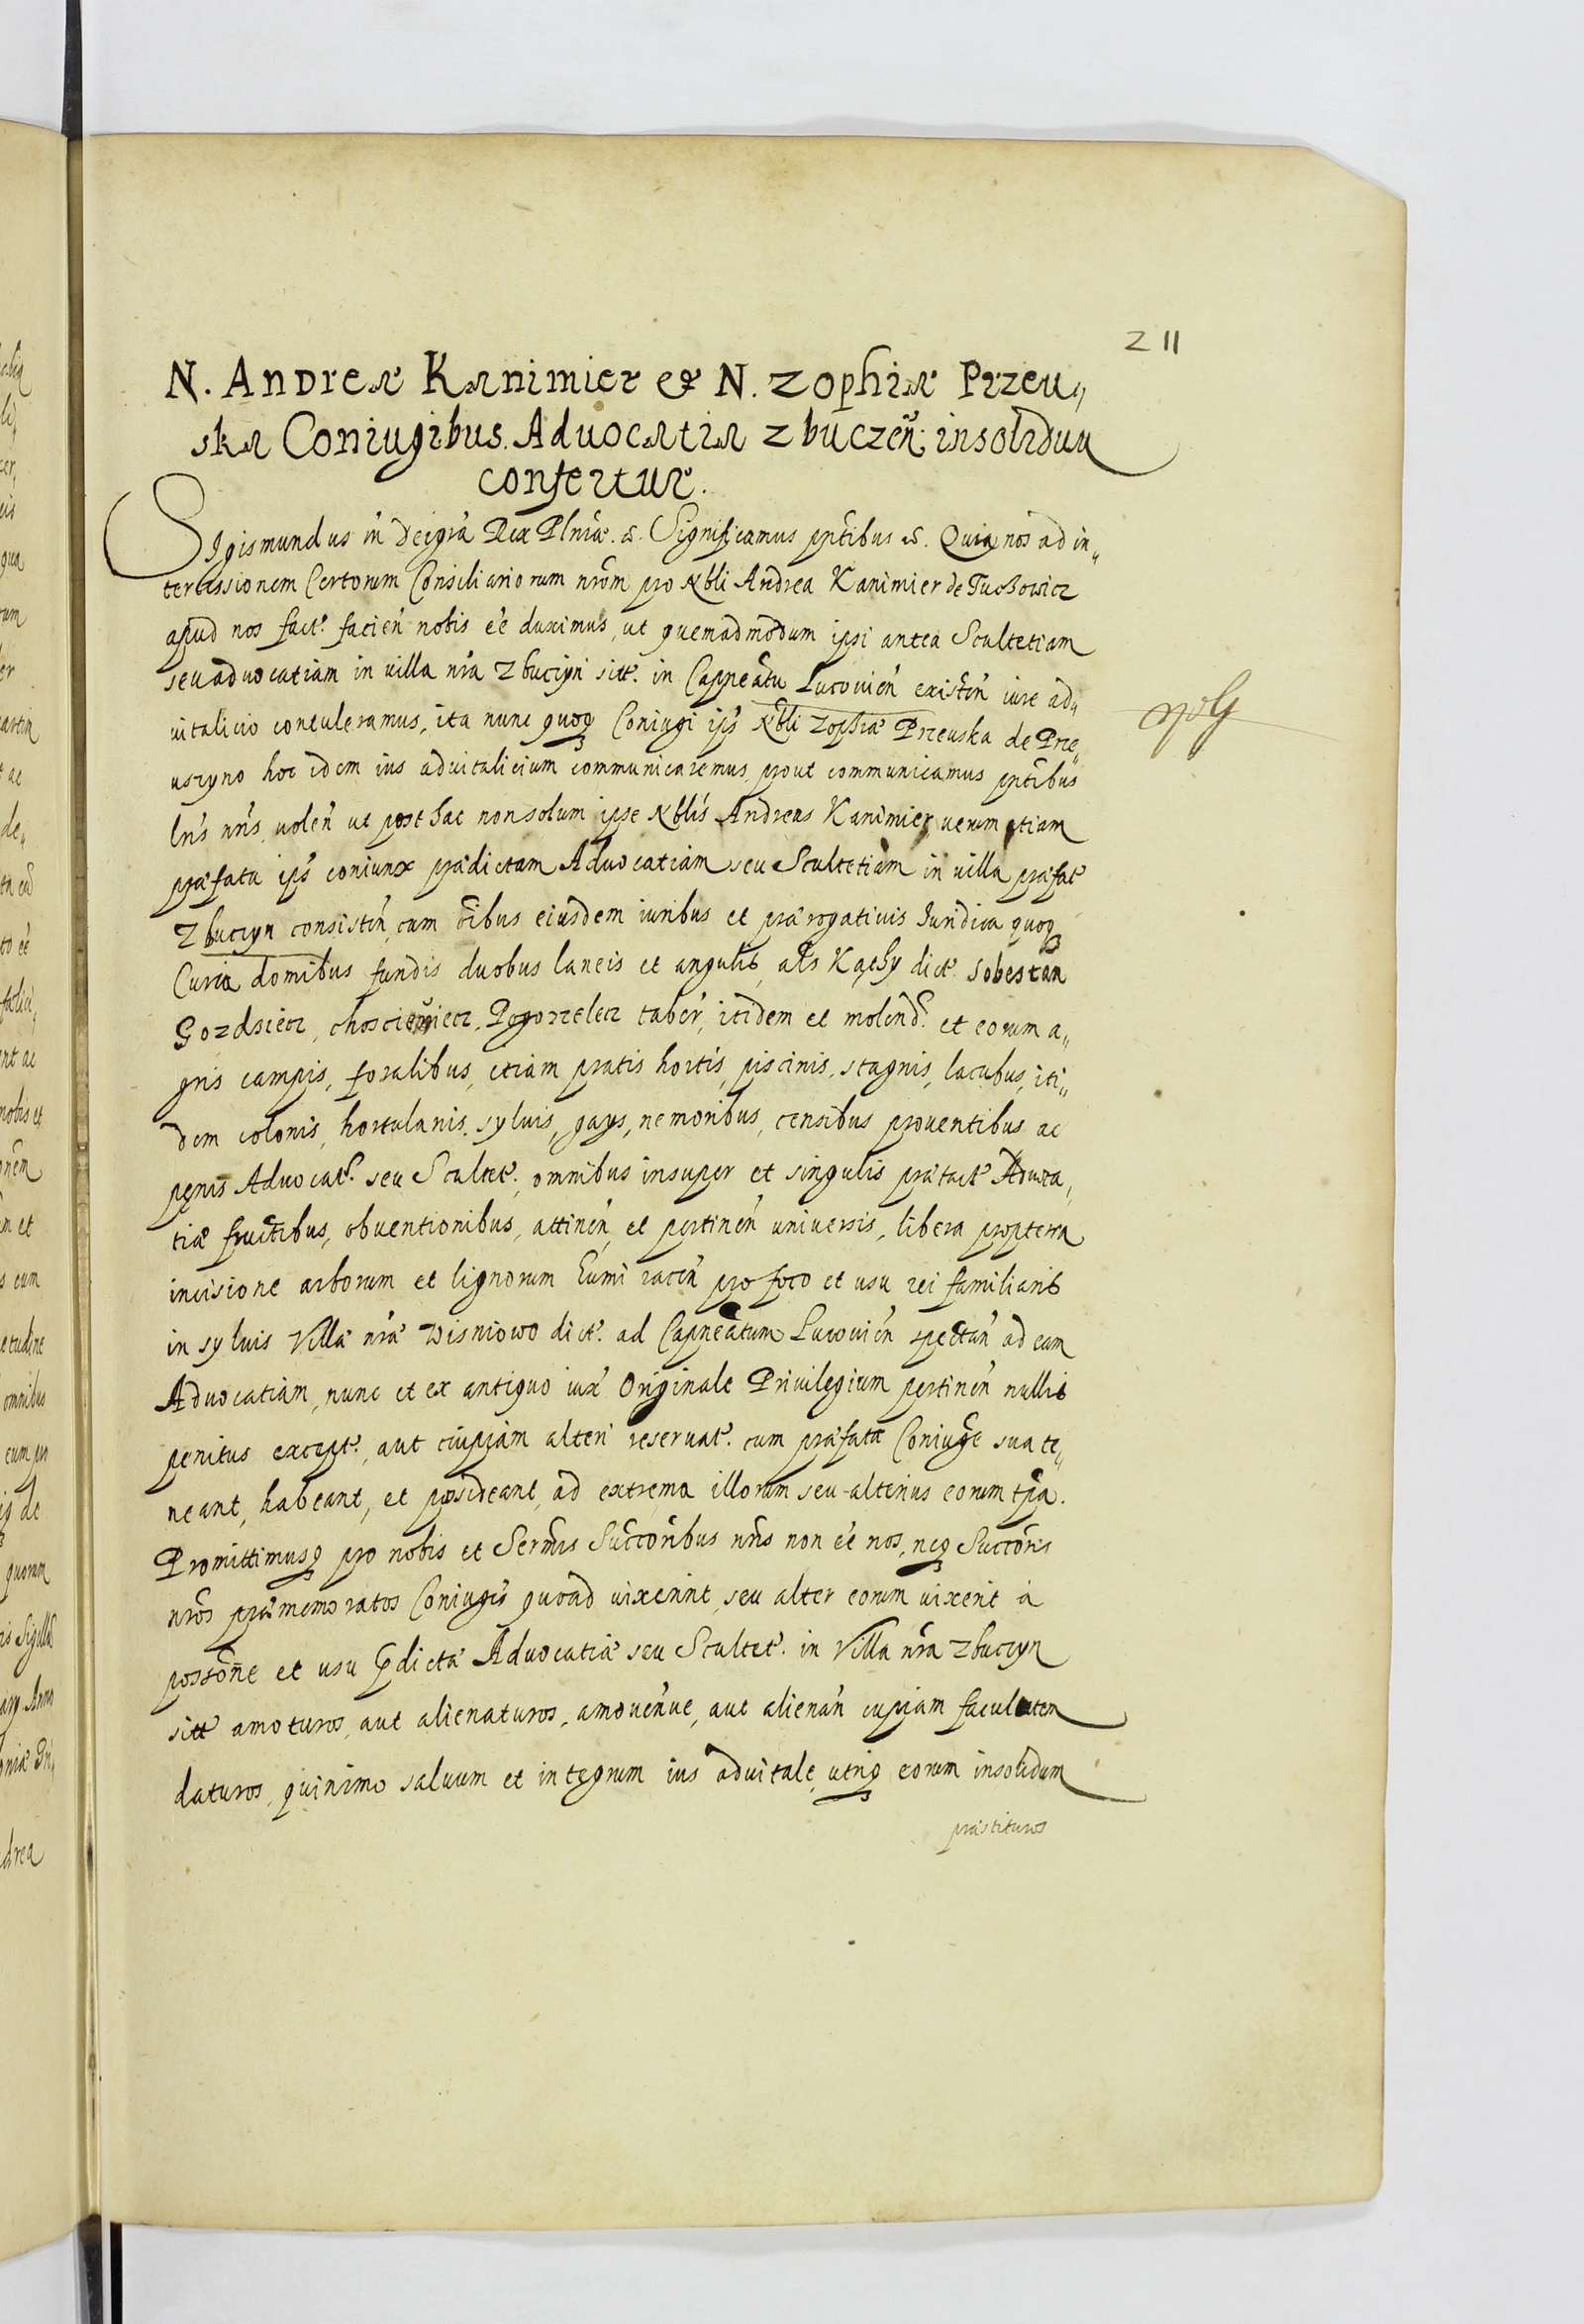 211
N. Andreæ Kanimier et N. Zophiæ Przeu„
ska Coniugibus. Aduocatia Zbuczeñ: insolidum
confertur.
Sigismundus iii deigrã Rex Plniæ. &. Significamus pñtibus &. Quia nos ad in„
tercessionem Certorum Consiliariorum nrõm pro Nbli Andrea Kanimier de Tuchowicz
apud nos fact. facień nobis ee duximus, ut quemadmodum ipsi antea Scultetiam
seu aduocatiam in uilla nrã Zbuczyn sitt. in Capneãtu Lucouień existeñ iure ad„
uitalicio contuleramus, ita nunc quoq Coniugi ips Nbli Zophiæ Przeuska de Prze„
uszyno hoc idem ius aduitalicium communicaremus, prout communicamus pñtibus
lrĩs nrĩs, uoleñ ut post hac non solum ipse Nblis Andreas Kanimier, uerum etiam
præfata ips coniunx prædictam Aduocatiam seu Scultetiam in uilla præfat
Zbuczyn consisteñ, cum oĩbus eiusdem iuribus et prærogatiuis Iuridica quoq
Curia domibus fundis duobus laneis et angulis als Kąthy dict. Sobestan
Gozdziecz, choscieniecz, Pogorzelecz taber, itidem et molend. et eorum a„
gris campis, foralibus, etiam pratis hortis, piscinis, stagnis, lacubus, iti„
dem colonis, hortulanis, syluis, gays, nemoribus, censibus prouentibus ac
penis Aduocat. seu Scultet., omnibus insuper et singulis prætact Aduoca,
tiæ fructibus, obuentionibus, attineñ, et pertineñ uniuersis, libera propterea
incisione arborum et lignorum humi iaceñ pro foco et usu rei familiaris
in syluis Villæ nræ Wisniowo dict. ad Capneãtum Lucouień spectañ ad eam
Aduocatiam, nunc et ex antiquo iux Originale Priuilegium pertineñ nullis
penitus except., aut cuipiam alteri reseruat. cum præfata Coniuge sua te„
neant, habeant, et possideant, ad extrema illorum seu alterius eorum tpã.
Promittimusq pro nobis et Sermis Succoribus nrĩs non ee nos, neq Succores
nros præmemoratos Coniuges quoad uixerint, seu alter eorum uixerit à
possone et usu pdictæ Aduocatiæ seu Scultet. in Villa nrã Zbuczyn
sitt amoturos, aut alienaturos, amoueñue, aut alienañ cuipiam facultatem
daturos, quinimo saluum et integrum ius aduitale, utriq eorum insolidum
præstituros